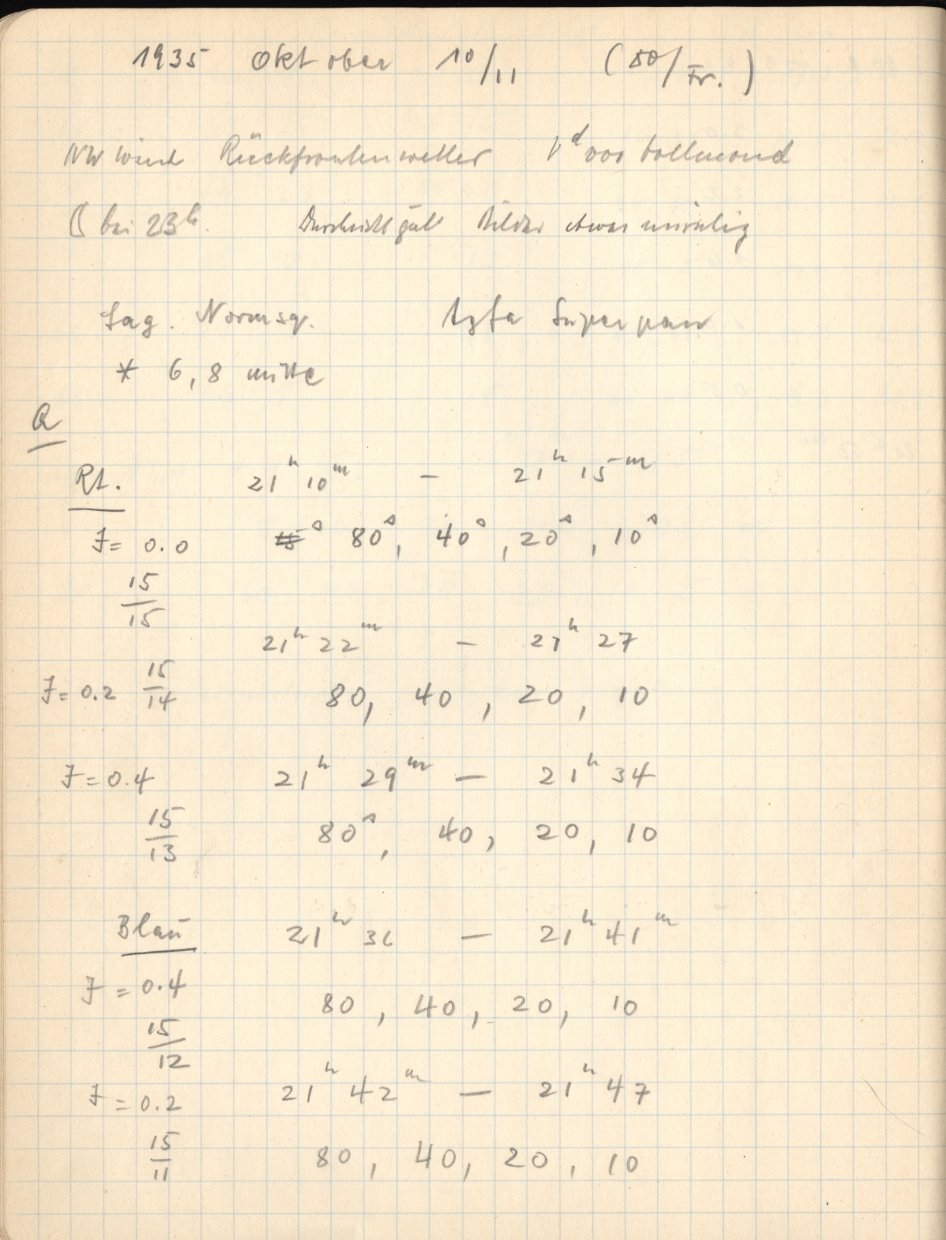 1935 Oktober 10/11 (50/Fr.)
NW Wind Rückfrontenwetter 1ᵈ vor Vollmond
☾ bei 23ʰ. Durchsicht gut Bilder etwas unruhig
Sag. Normsq. Agfa Superpan
* 6,8 mitte
Q
Rt. 21ʰ 10ᵐ – 21ʰ 15ᵐ
J = 0.0 80ˢ, 40ˢ, 20ˢ, 10ˢ
15/15
21ʰ 22ᵐ – 21ʰ 27
J = 0.2 15/14 80, 40, 20, 10
J = 0.4 21ʰ 29ᵐ – 21ʰ 34
15/13 80ˢ, 40, 20, 10
Blau 21ʰ 36 – 21ʰ 41ᵐ
J = 0.4 80, 40, 20, 10
15/12
J = 0.2 21ʰ 42ᵐ – 21ʰ 47
15/11 80, 40, 20, 10